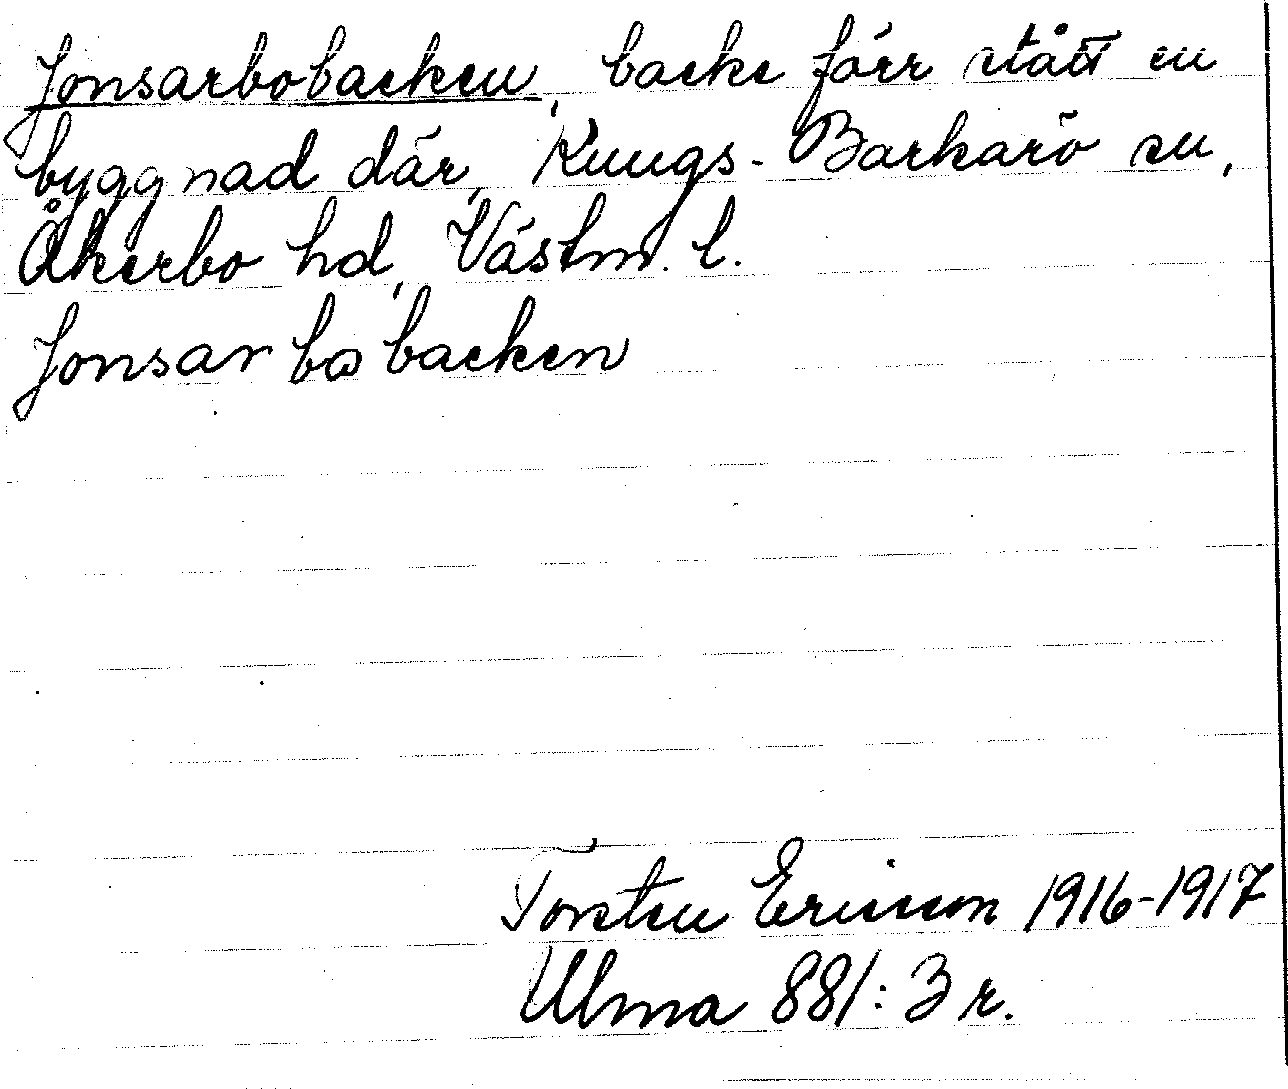 Jonsarbobacken, backe förr stått en
byggnad där, Kungs-Barkarö sn,
Åkerbo hd, Västm. l.
Jonsar bo backen
Torsten Ericson 1916-1917
Ulma 881:3 r.